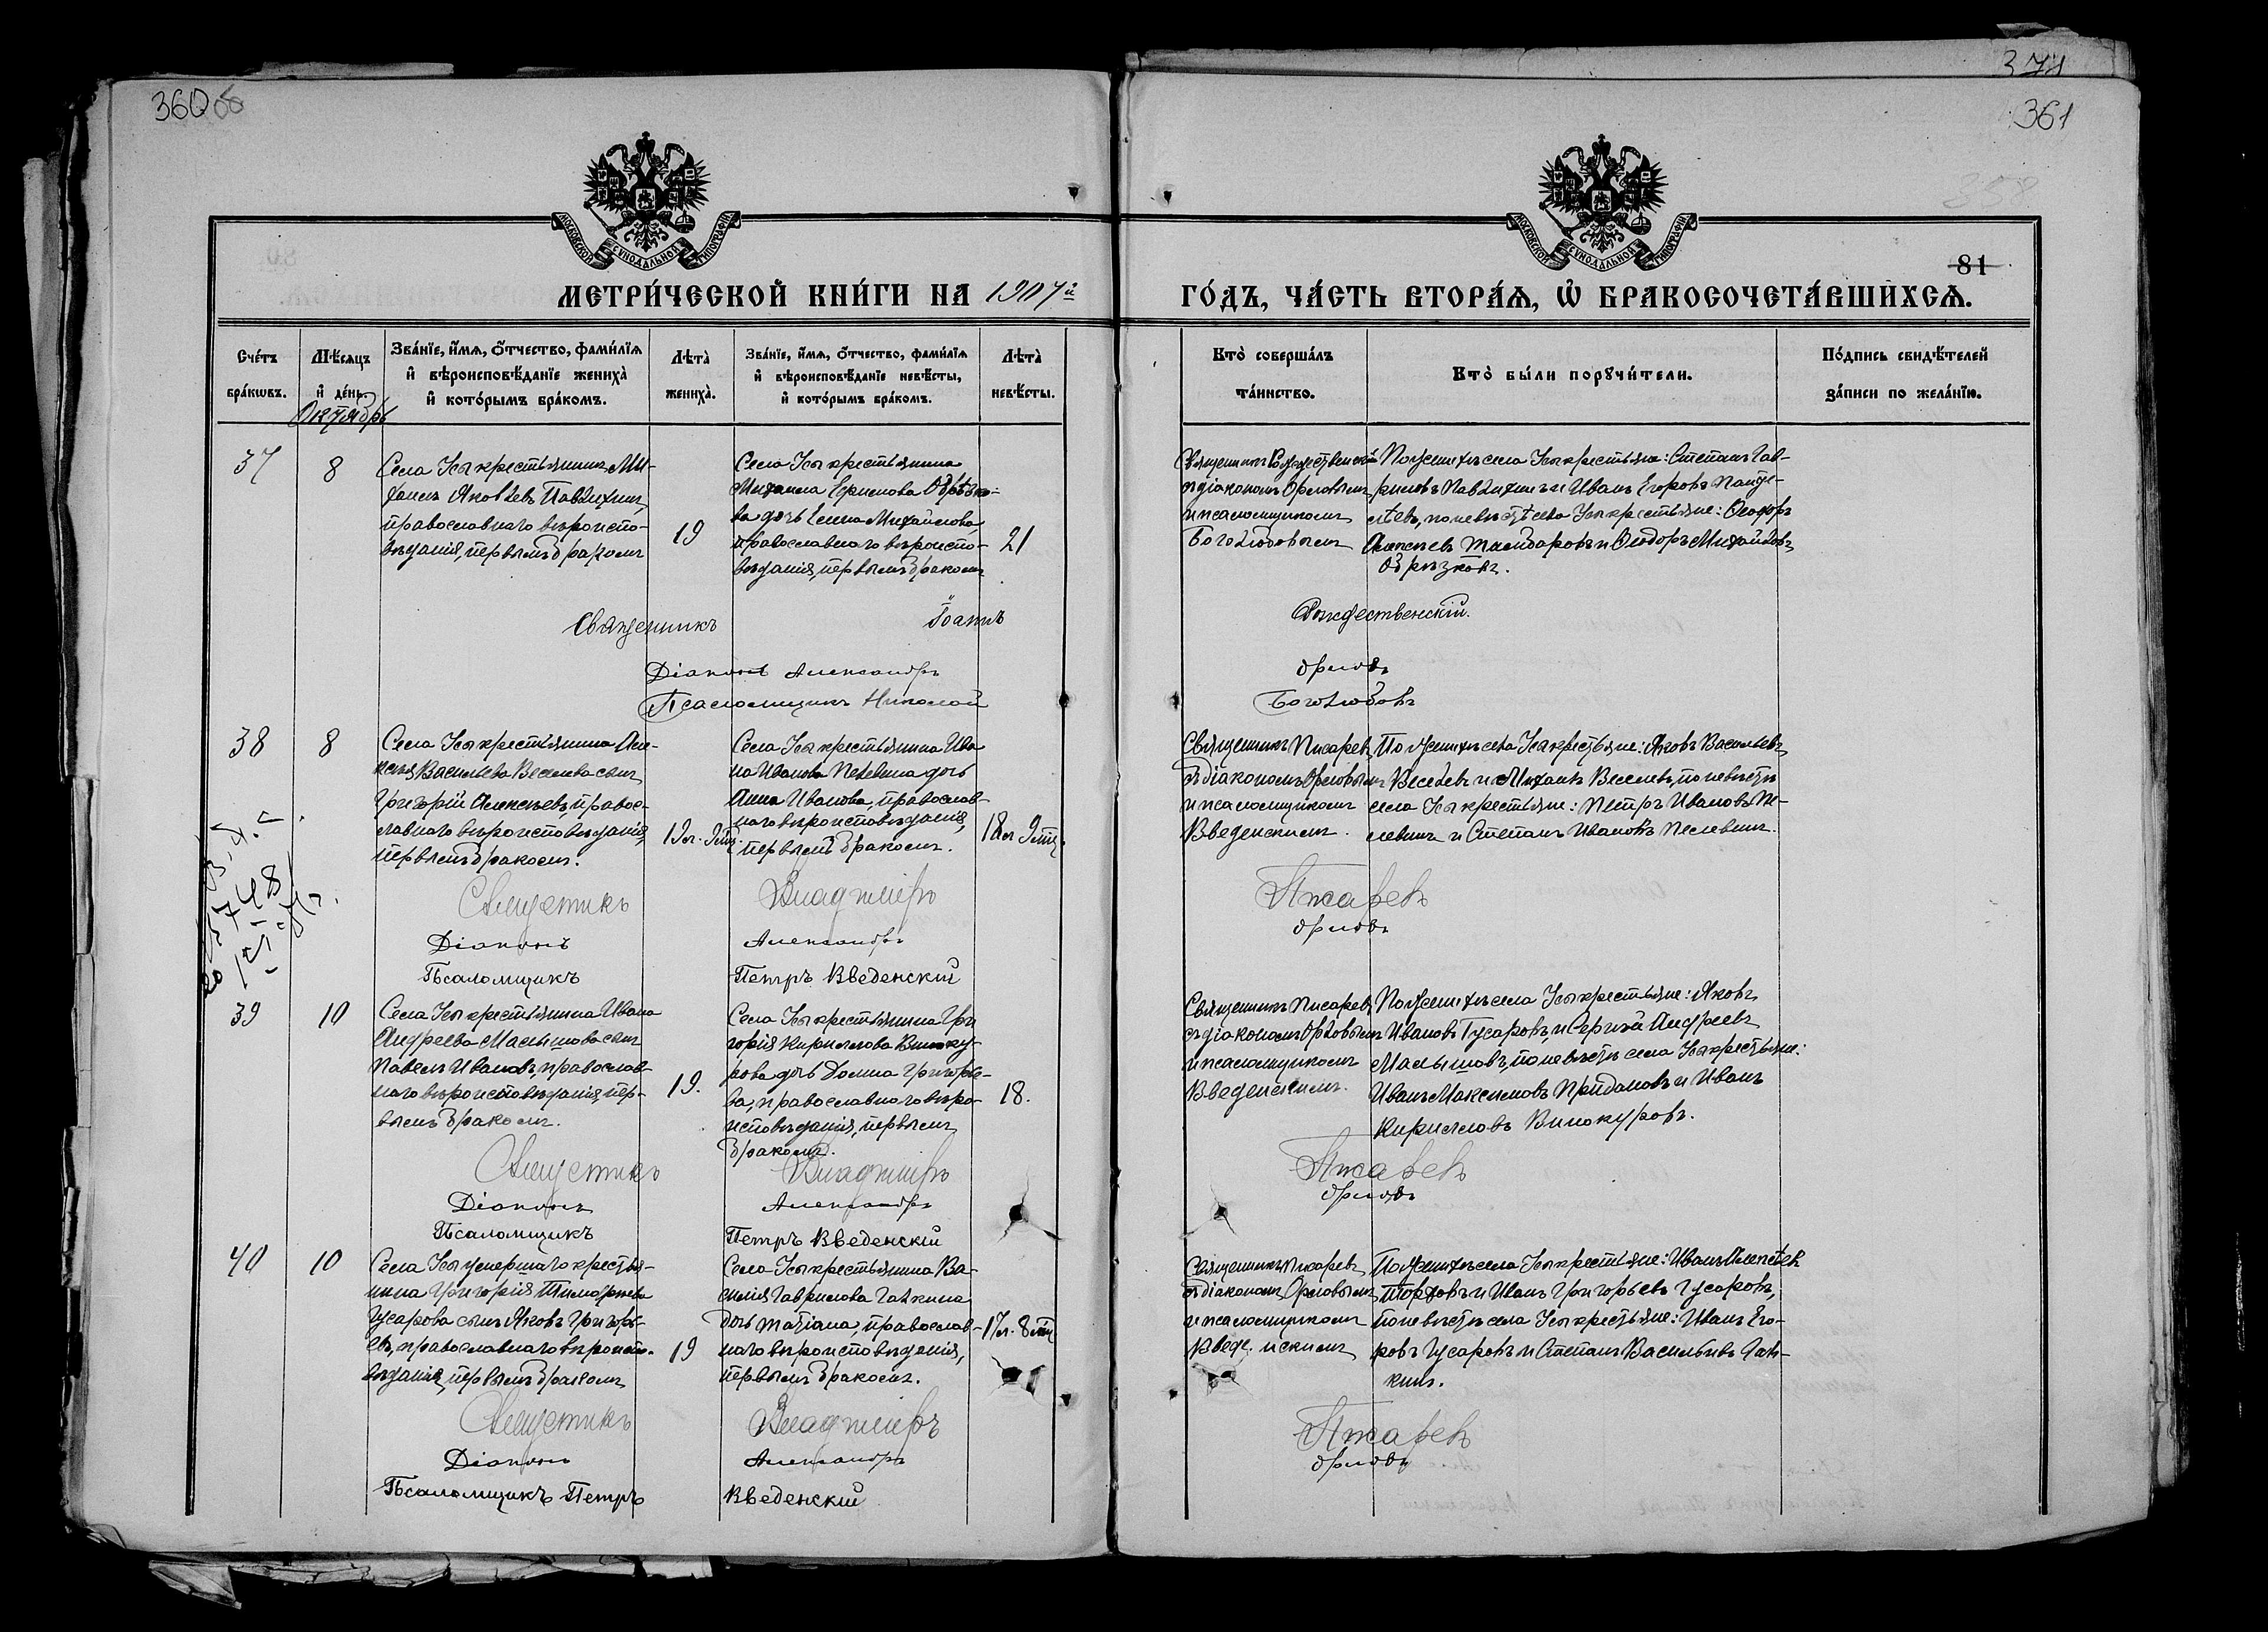 360
374
361
МОСКОВСКОЙ СѴНОДАЛЬНОЙ ТИПОГРАФІИ
МОСКОВСКОЙ СѴНОДАЛЬНОЙ ТИПОГРАФІИ
81
МЕТРИ́ЧЕСКОЙ КНИ́ГИ НА 1907й
ГО́ДЪ, ЧА́СТЬ ВТОРА́Ѧ, Ѽ БРАКОСОЧЕТА́ВШИХСѦ.
Сче́тъ бра́кѡвъ.
Мѣ́сѧцъ и҆ де́нь.
Зва́нїе, и҆́мѧ, ѻ҆́тчество, фами́лїѧ и҆ вѣроисповѣ́данїе жениха̀ и҆ кото́рымъ бра́комъ.
Лѣта̀ жениха̀.
Зва́нїе, и҆́мѧ, ѻ҆́тчество, фами́лїѧ и҆ вѣроисповѣ́данїе невѣ́сты, и҆ кото́рымъ бра́комъ.
Лѣта̀ невѣ́сты.
Кто̀ соверша́лъ та́инство.
Кто̀ бы́ли порꙋчи́тели.
По́дпись свидѣ́телей за́писи по жела́нїю.
Октябрь
37
8
Села Усы крестьянинъ Ми-
хаилъ Яковлевъ Павлихинъ,
православнаго вѣроиспо-
вѣданія, первымъ бракомъ
19
Села Усы крестьянина
Михаила Ефимова Обрѣзко-
ва дочь Елена Михайлова,
православнаго вѣроиспо-
вѣданія, первымъ бракомъ
21
Священникъ Рождественскій
съ діакономъ Орловымъ
и псаломщикомъ
Боголюбовымъ
По женихѣ села Усы крестьяне: Степанъ Гав-
риловъ Павлихинъ и Иванъ Егоровъ
по невѣстѣ села Усы крестьяне: Ѳеодоръ
Алексѣевъ и Ѳеодоръ Михайловъ
Обрѣзковъ.
Священникъ Іоаннъ Рождественскій.
Діаконъ Александръ Орловъ
Псаломщикъ Николай Боголюбовъ
38
8
Села Усы крестьянина Але-
ксѣя Васильева Веселева сынъ
Григорій Алексѣевъ, правос-
лавнаго вѣроисповѣданія,
первымъ бракомъ.
19 л. 9 мц.
Села Усы крестьянина Ива-
на Иванова Пелевина дочь
Анна Иванова, православ-
наго вѣроисповѣданія,
первымъ бракомъ.
18 л. 9 мц.
Священникъ Писаревъ
съ діакономъ Орловымъ
и псаломщикомъ
Введенскимъ.
По женихѣ села Усы крестьяне: Яковъ Васильевъ
Веселевъ и Михаилъ Веселевъ, по невѣстѣ
села Усы крестьяне: Петръ Ивановъ Пе-
левинъ и Степанъ Ивановъ Пелевинъ.
Священникъ Владиміръ Писаревъ
Діаконъ Александръ Орловъ
Псаломщикъ Петръ Введенскій
39
10
Села Усы крестьянина Ивана
Андреева Малышова сынъ
Павелъ Ивановъ, православ-
наго вѣроисповѣданія, пер-
вымъ бракомъ.
19.
Села Усы крестьянина Гри-
горія Кириллова Виноку-
рова дочь Домна Григорье-
ва, православнаго вѣро-
исповѣданія, первымъ
бракомъ.
18.
Священникъ Писаревъ
съ діакономъ Орловымъ
и псаломщикомъ
Введенскимъ.
По женихѣ села Усы крестьяне: Яковъ
Ивановъ Гусаровъ, и Сергѣй Андреевъ
Малышовъ, по невѣстѣ села Усы крестьяне:
Иванъ Максимовъ Придановъ и Иванъ
Кирилловъ Винокуровъ.
Священникъ Владиміръ Писаревъ
Діаконъ Александръ Орловъ
Псаломщикъ Петръ Введенскій
40
10
Села Усы умершаго крестья-
нина Григорія Тимофѣева
Гусарова сынъ Яковъ Григорь-
евъ, православнаго вѣроиспо-
вѣданія, первымъ бракомъ
19
Села Усы крестьянина Ва-
силія Гаврилова Галкина
дочь Татіана, православ-
наго вѣроисповѣданія,
первымъ бракомъ.
17 л. 8 мц
Священникъ Писаревъ
съ діакономъ Орловымъ
и псаломщикомъ
Введенскимъ
По женихѣ села Усы крестьяне: Иванъ Алексѣевъ
и Иванъ Григорьевъ Гусаровъ,
по невѣстѣ села Усы крестьяне: Иванъ Его-
ровъ Гусаровъ и Степанъ Васильевъ Гал-
кинъ.
Священникъ Владиміръ Писаревъ
Діаконъ Александръ Орловъ
Псаломщикъ Петръ Введенскій